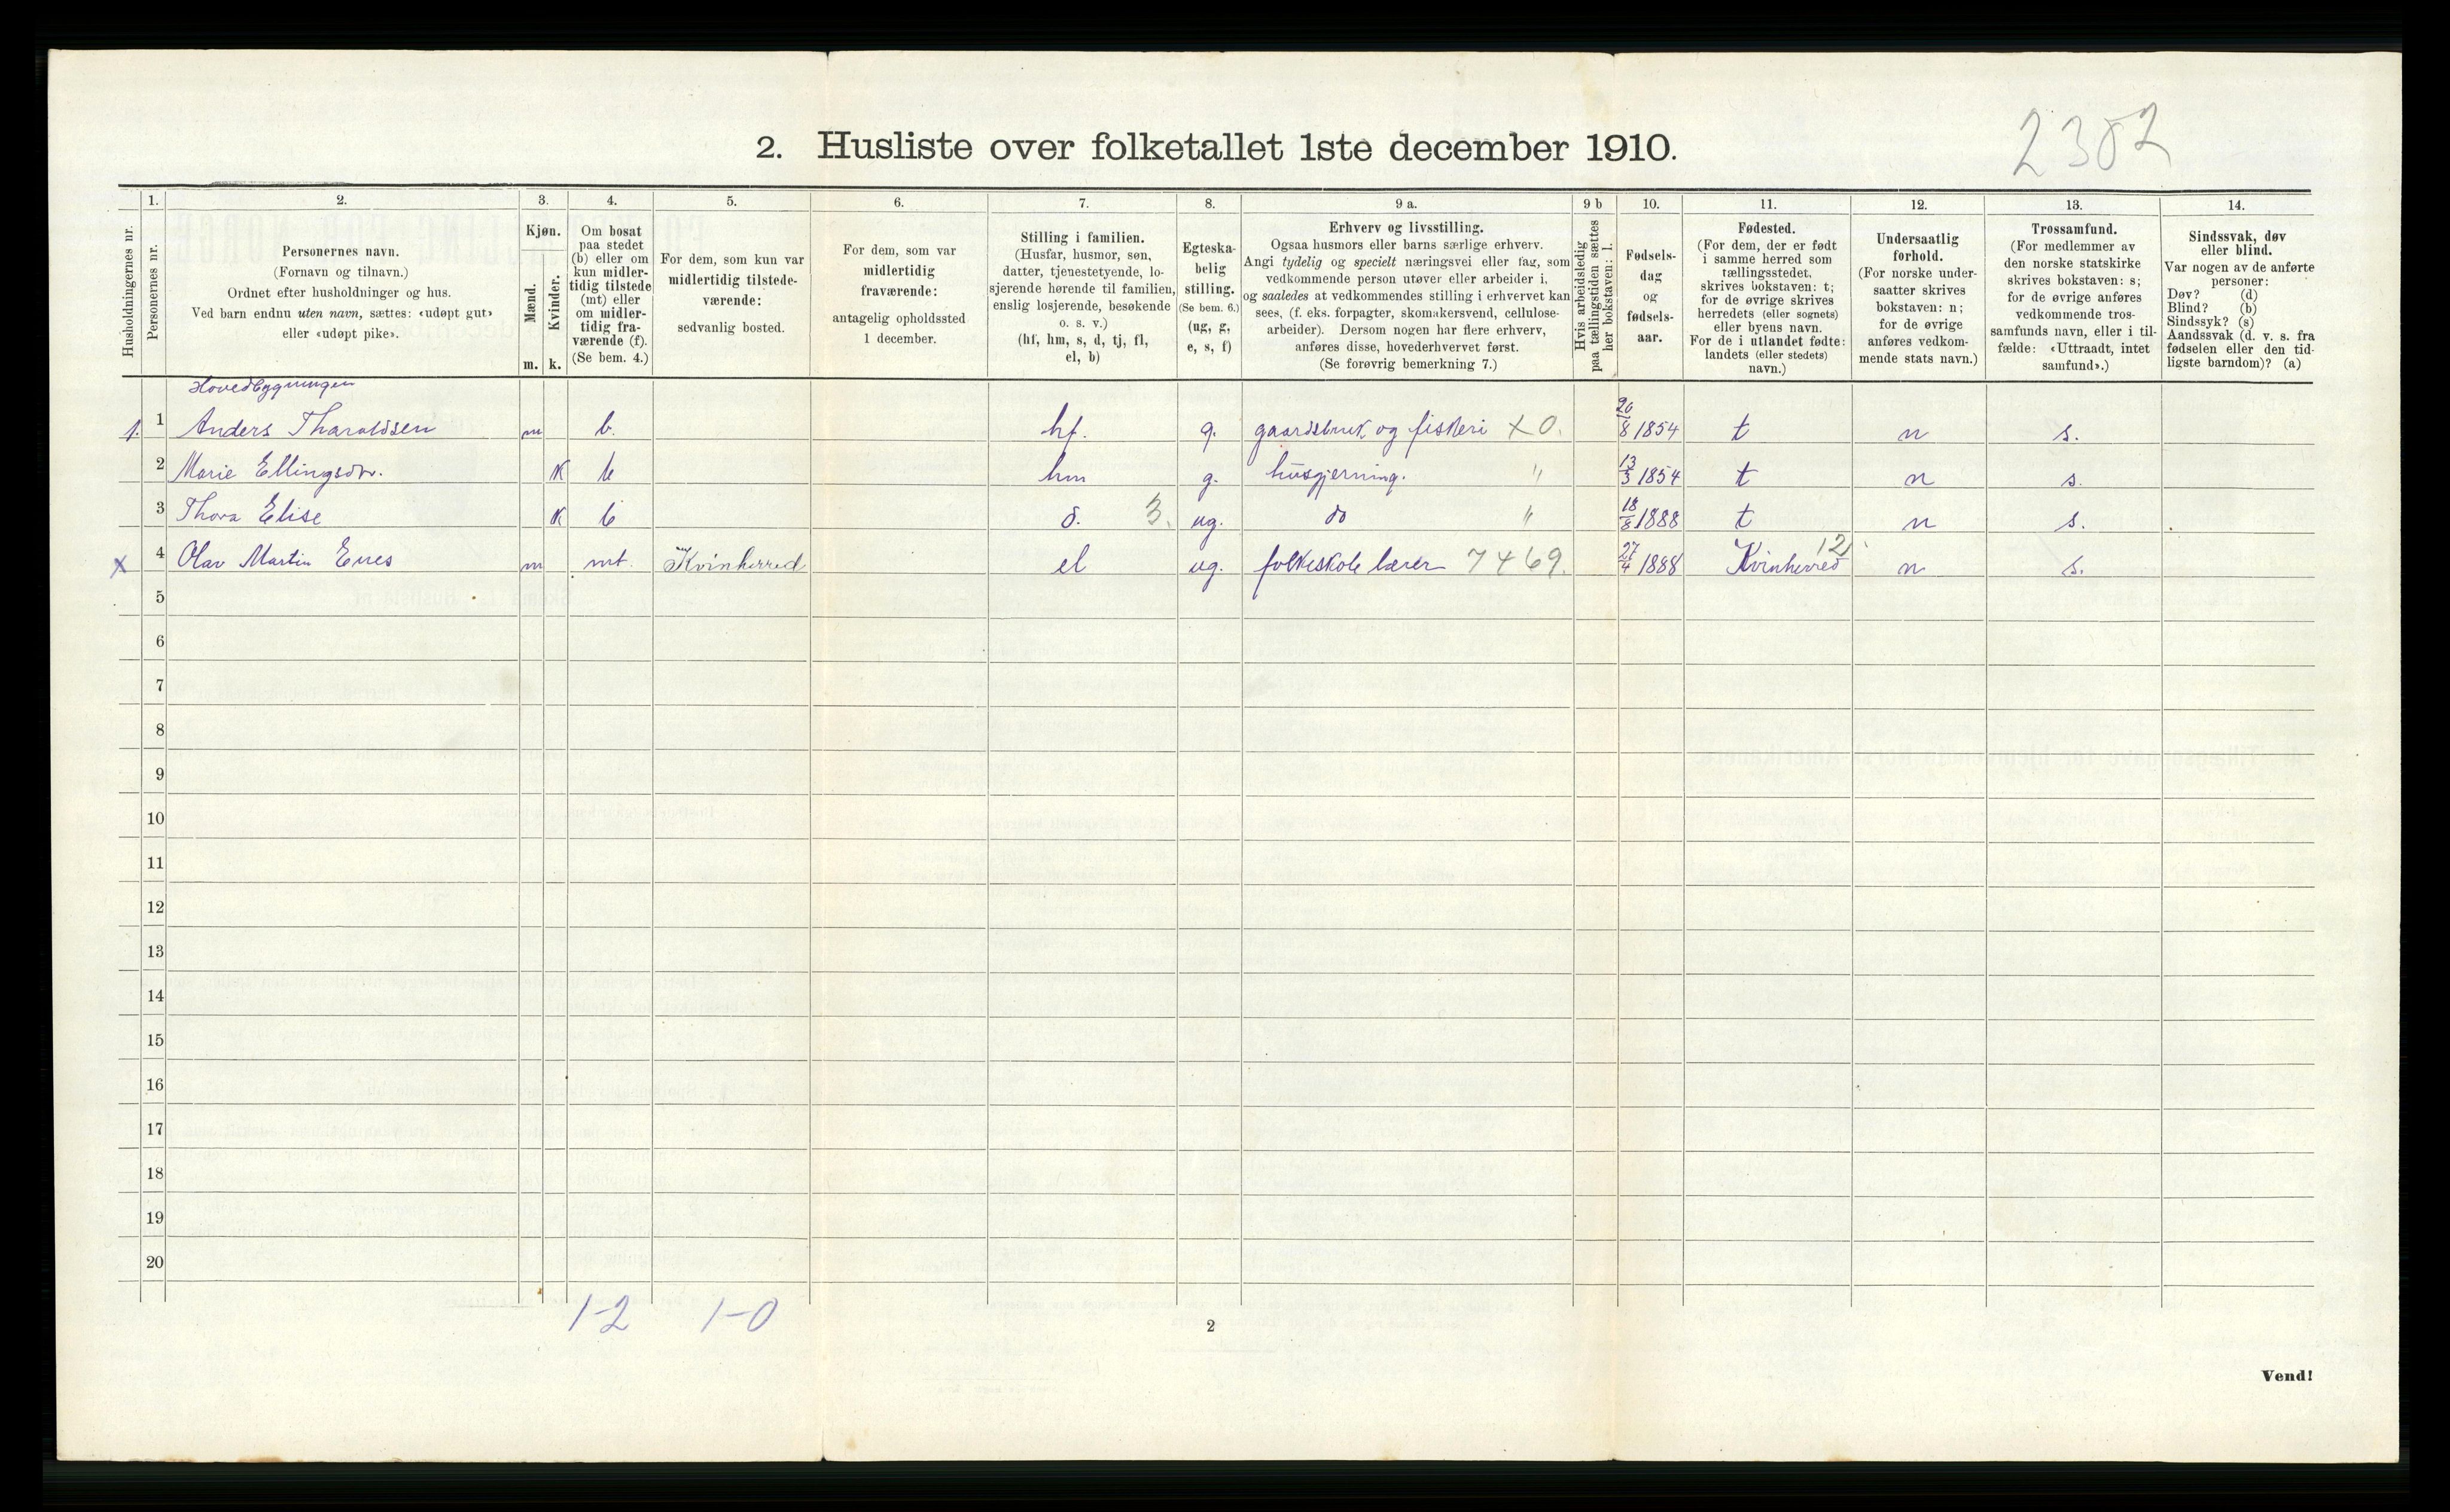 2382
2. Husliste over folketallet 1ste december 1910.
1. 2. 3. 4. 5. 6. 7. 8. 9 a. 9 b 10. 11. 12. 13. 14.
Husholdningernes nr.
Personernes nr.
Personernes navn.
(Fornavn og tilnavn.)
Ordnet efter husholdninger og hus.
Ved barn endnu uten navn, sættes: «udøpt gut»
eller «udøpt pike».
Kjøn.
Mænd.
Kvinder.
m. k.
Om bosat
paa stedet
(b) eller om
kun midler-
tidig tilstede
(mt) eller
om midler-
tidig fra-
værende (f).
(Se bem. 4.)
For dem, som kun var
midlertidig tilstede-
værende:
sedvanlig bosted.
For dem, som var
midlertidig
fraværende:
antagelig opholdssted
1 december.
Stilling i familien.
(Husfar, husmor, søn,
datter, tjenestetyende, lo-
sjerende hørende til familien,
enslig losjerende, besøkende
o. s. v.)
(hf, hm, s, d, tj, fl,
el, b)
Egteska-
belig
stilling.
(Se bem. 6.)
(ug, g,
e, s, f)
Erhverv og livsstilling.
Ogsaa husmors eller barns særlige erhverv.
Angi tydelig og specielt næringsvei eller fag, som
vedkommende person utøver eller arbeider i,
og saaledes at vedkommendes stilling i erhvervet kan
sees, (f. eks. forpagter, skomakersvend, cellulose-
arbeider). Dersom nogen har flere erhverv,
anføres disse, hovederhvervet først.
(Se forøvrig bemerkning 7.)
Hvis arbeidsledig
paa tællingstiden sættes
her bokstaven: l.
Fødsels-
dag
og
fødsels-
aar.
Fødested.
(For dem, der er født
i samme herred som
tællingsstedet,
skrives bokstaven: t;
for de øvrige skrives
herredets (eller sognets)
eller byens navn.
For de i utlandet fødte:
landets (eller stedets)
navn.)
Undersaatlig
forhold.
(For norske under-
saatter skrives
bokstaven: n;
for de øvrige
anføres vedkom-
mende stats navn.)
Trossamfund.
(For medlemmer av
den norske statskirke
skrives bokstaven: s;
for de øvrige anføres
vedkommende tros-
samfunds navn, eller i til-
fælde: «Uttraadt, intet
samfund».)
Sindssvak, døv
eller blind.
Var nogen av de anførte
personer:
Døv? (d)
Blind? (b)
Sindssyk? (s)
Aandssvak (d. v. s. fra
fødselen eller den tid-
ligste barndom)? (a)
Hovedbygningen
1. 1 Anders Tharaldsen m b. hf. g. gaardsbruk og fiskeri X 0. 20/8 1854 t n s.
2 Marie Ellingsdtr. k b hm g. husgjerning. " 13/3 1854 t n s.
3 Thora Elise k b d. 3. ug. do " 18/8 1888 t n s.
x 4 Olav Martin Enes m mt. Kvinherred el ug. folkeskole lærer 7469. 27/4 1888 Kvinherred 12 n s.
5
6
7
8
9
10
11
12
13
14
15
16
17
18
19
20
1-2 1-0
2
Vend!